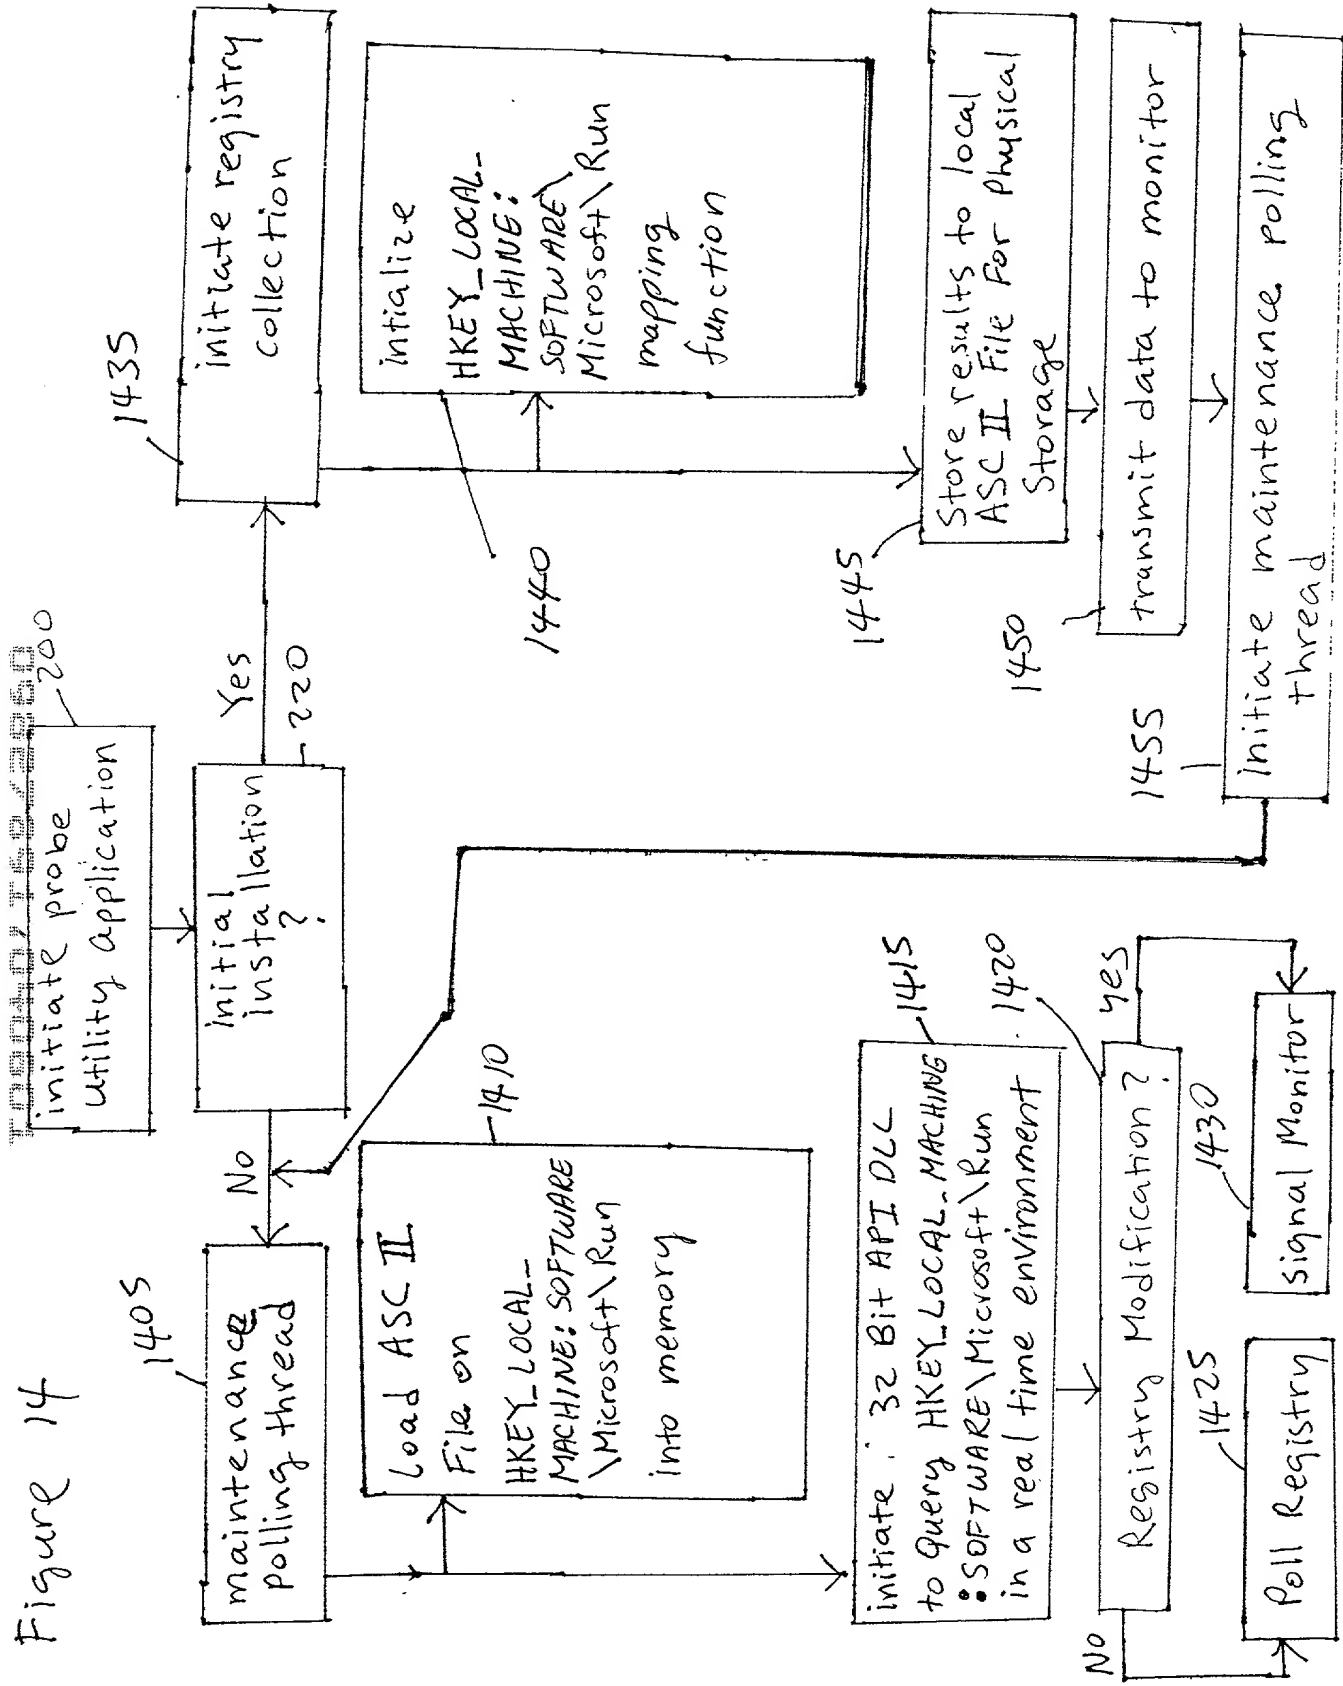 Figure 14
initiate probe
utility application
200
initial
installation
?
220
No
Yes
maintenance
polling thread
1405
Load ASC II
File on
HKEY_LOCAL_
MACHINE: SOFTWARE
\Microsoft\Run
into memory
1410
initiate . 32 Bit API DLL
to Query HKEY_LOCAL_MACHINE
:SOFTWARE\Microsoft\Run
in a real time environment
1415
Registry Modification?
1420
No
yes
Poll Registry
1425
Signal Monitor
1430
initiate registry
collection
1435
intialize
HKEY_LOCAL_
MACHINE:
SOFTWARE\
Microsoft\Run
mapping
function
1440
Store results to local
ASC II File For Physical
Storage
1445
transmit data to monitor
1450
Initiate maintenance polling
thread
1455